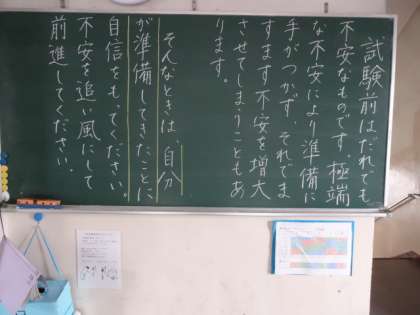 試験前はだれでも
不安なものです。極端
な不安により準備に
手がつかず、それでま
すます不安を増大
させてしまうこともあ
ります。
そんなときは、自分
が準備してきたことに
自信をもってください。
不安を追い風にして
前進してください。